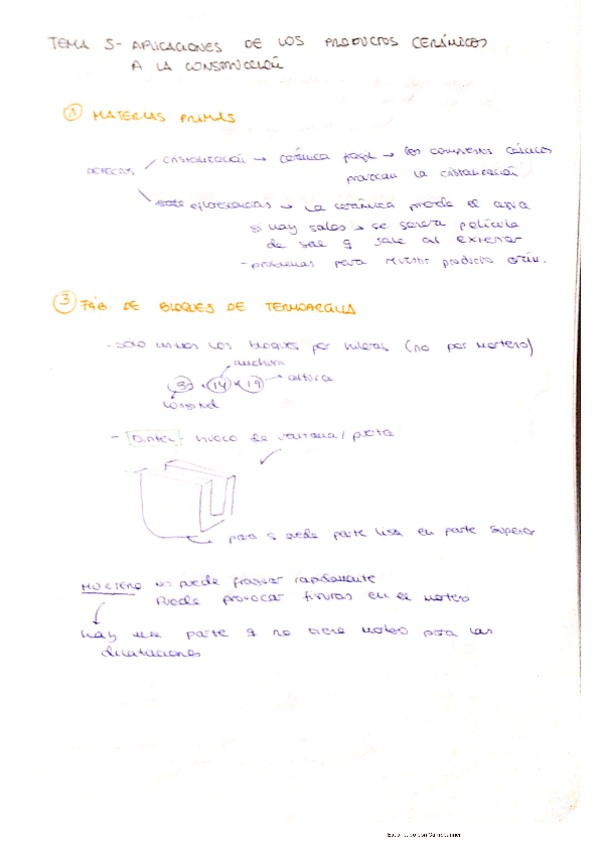 TEMA 5- APLICACIONES DE LOS PRODUCTOS CERÁMICOS
A LA CONSTRUCCIÓN
① MATERIAS PRIMAS
DEFECTOS
cristalización → cerámica → los compuestos cálcicos
provocan la cristalización
eflorescencias → La cerámica pierde el agua
si hay sales → se genera película
de sal q sale al exterior
- problemas para revestir producto
③ FÁB DE BLOQUES DE TERMOARCILLA
- Sólo unimos los bloques por hileras (no por mortero)
anchura
14 × 19 → altura
Longitud
- Dintel - hueco de ventana / puerta
para q quede parte lisa en parte superior
MORTERO no puede fraguar rapidamente
Puede provocar fisuras en el mortero
hay una parte q no tiene mortero para las
dilataciones